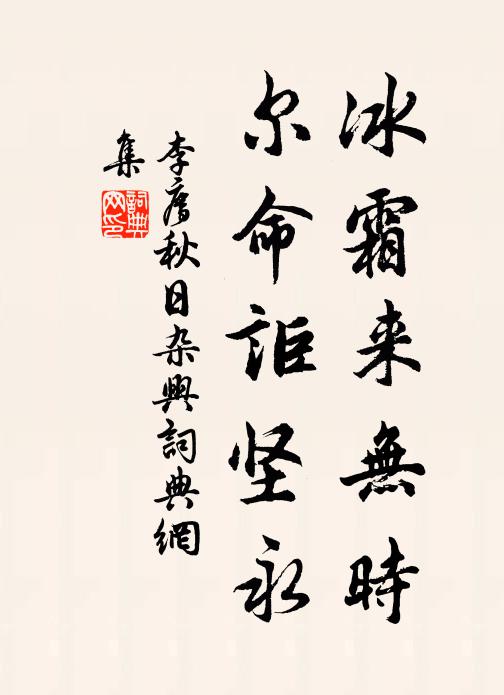 冰霜来無時
尔命詎坚永
李廌秋日杂興詞典網
集
詞典网印